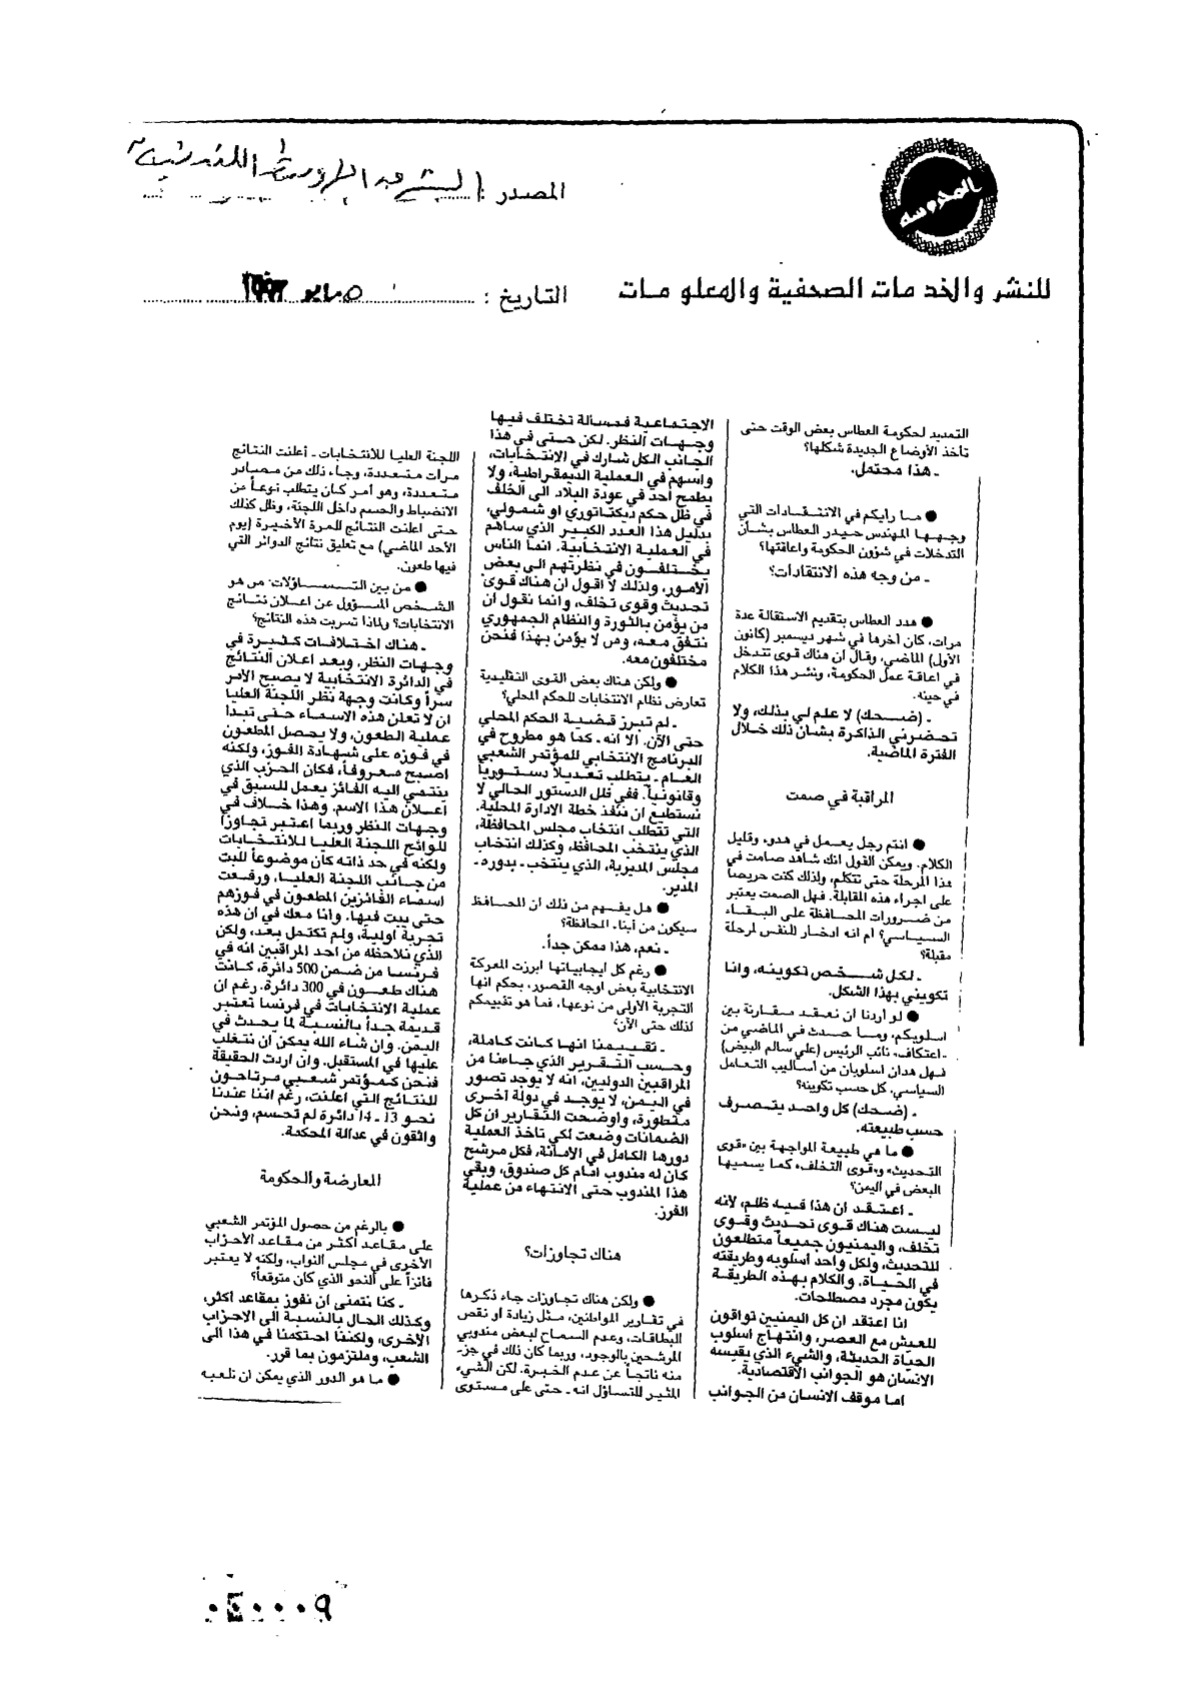 المحروسة
المصدر : الشرق الأوسط اللندنية
للنشر والخدمات الصحفية والمعلومات
التاريخ : ٥ مايو ١٩٩٣
التمديد لحكومة العطاس بعض الوقت حتى
تأخذ الأوضاع الجديدة شكلها؟
ـ هذا محتمل.
● ما رايكم في الانتقادات التي
وجهها المهندس حيدر العطاس بشأن
التدخلات في شؤون الحكومة واعاقتها؟
ـ من وجه هذه الانتقادات؟
● هدد العطاس بتقديم الاستقالة عدة
مرات، كان آخرها في شهر ديسمبر (كانون
الأول) الماضي، وقال ان هناك قوى تتدخل
في اعاقة عمل الحكومة، ونشر هذا الكلام
في حينه.
ـ (ضحك) لا علم لي بذلك، ولا
تحضرني الذاكرة بشأن ذلك خلال
الفترة الماضية.
المراقبة في صمت
● انتم رجل يعمل في هدوء وقليل
الكلام. ويمكن القول انك شاهد صامت في
هذا المرحلة حتى تتكلم، ولذلك كنت حريصاً
على اجراء هذه المقابلة. فهل الصمت يعتبر
من ضرورات المحافظة على البقاء
السياسي؟ ام انه ادخار للنفس لمرحلة
مقبلة؟
ـ لكل شخص تكوينه، وانا
تكويني بهذا الشكل.
● لو أردنا ان نعقد مقارنة بين
اسلوبكم، وما حدث في الماضي من
«اعتكاف» نائب الرئيس (علي سالم البيض)
فهل هذان اسلوبان من أساليب التعامل
السياسي، كل حسب تكوينه؟
ـ (ضحك) كل واحد يتصرف
حسب طبيعته.
● ما هي طبيعة المواجهة بين «قوى
التحديث» و«قوى التخلف» كما يسميها
البعض في اليمن؟
ـ اعتقد ان هذا فيه ظلم، لأنه
ليست هناك قوى تحديث وقوى
تخلف، واليمنيون جميعاً متطلعون
للتحديث، ولكل واحد أسلوبه وطريقته
في الحياة. والكلام بهذه الطريقة
يكون مجرد مصطلحات.
انا اعتقد ان كل اليمنيين تواقون
للعيش مع العصر، وانتهاج أسلوب
الحياة الحديثة، والشيء الذي يقيسه
الانسان هو الجوانب الاقتصادية.
اما موقف الانسان من الجوانب
الاجتماعية فمسألة تختلف فيها
وجهات النظر. لكن حتى في هذا
الجانب الكل شارك في الانتخابات،
واسهم في العملية الديمقراطية، ولا
يطمح احد في عودة البلاد الى الخلف
في ظل حكم ديكتاتوري او شمولي،
بدليل هذا العدد الكبير الذي ساهم
في العملية الانتخابية. انما الناس
يختلفون في نظرتهم الى بعض
الأمور، ولذلك لا اقول ان هناك قوى
تحديث وقوى تخلف، وانما نقول ان
من يؤمن بالثورة والنظام الجمهوري
نتفق معه، ومن لا يؤمن بهذا فنحن
مختلفون معه.
● ولكن هناك بعض القوى التقليدية
تعارض نظام الانتخابات للحكم المحلي؟
ـ لم تبرز قضية الحكم المحلي
حتى الآن. الا انه ـ كما هو مطروح في
البرنامج الانتخابي للمؤتمر الشعبي
العام ـ يتطلب تعديلاً دستورياً
وقانونياً. ففي ظل الدستور الحالي لا
نستطيع ان ننفذ خطة الادارة المحلية.
التي تتطلب انتخاب مجلس المحافظة،
الذي ينتخب المحافظ، وكذلك انتخاب
مجلس المديرية، الذي ينتخب ـ بدوره ـ
المدير.
● هل يفهم من ذلك ان المحافظ
سيكون من أبناء المحافظة؟
ـ نعم، هذا ممكن جداً.
● رغم كل ايجابياتها ابرزت المعركة
الانتخابية بعض اوجه القصور، بحكم انها
التجربة الأولى من نوعها، فما هو تقييمكم
لذلك حتى الآن؟
ـ تقييمنا انها كانت كاملة،
وحسب التقرير الذي جاءنا من
المراقبين الدوليين، انه لا يوجد تصور
في اليمن، لا يوجد في دولة اخرى
متطورة، واوضحت التقارير ان كل
الضمانات وضعت لكي تأخذ العملية
دورها الكامل في الأمانة، فكل مرشح
كان له مندوب امام كل صندوق، وبقي
هذا المندوب حتى الانتهاء من عملية
الفرز.
هناك تجاوزات؟
● ولكن هناك تجاوزات جاء ذكرها
في تقارير المواطنين، مثل زيادة او نقص
البطاقات، وعدم السماح لبعض مندوبي
المرشحين بالوجود، وربما كان ذلك في جزء
منه ناتجاً عن عدم الخبرة. لكن الشيء
المثير للتساؤل انه ـ حتى على مستوى
اللجنة العليا للانتخابات ـ أعلنت النتائج
مرات متعددة، وجاء ذلك من مصادر
متعددة، وهو أمر كان يتطلب نوعاً من
الانضباط والحسم داخل اللجنة، وظل كذلك
حتى اعلنت النتائج للمرة الأخيرة (يوم
الأحد الماضي) مع تعليق نتائج الدوائر التي
فيها طعون.
● من بين التساؤلات: من هو
الشخص المسؤول عن اعلان نتائج
الانتخابات؟ ولماذا تسربت هذه النتائج؟
ـ هناك اختلافات كثيرة في
وجهات النظر، وبعد اعلان النتائج
في الدائرة الانتخابية لا يصبح الأمر
سراً وكانت وجهة نظر اللجنة العليا
ان لا تعلن هذه الاسماء حتى تبدأ
عملية الطعون، ولا يحصل المطعون
في فوزه على شهادة الفوز، ولكنه
اصبح معروفاً، فكان الحزب الذي
ينتمي اليه الفائز يعمل للسبق في
اعلان هذا الاسم. وهذا خلاف في
وجهات النظر وربما اعتبر تجاوزاً
للوائح اللجنة العليا للانتخابات
ولكنه في حد ذاته كان موضوعاً للبت
من جانب اللجنة العليا، ورفعت
اسماء الفائزين المطعون في فوزهم
حتى يبت فيها. وانا معك في ان هذه
تجربة اولية، ولم تكتمل بعد، ولكن
الذي نلاحظه من احد المراقبين انه في
فرنسا من ضمن 500 دائرة، كانت
هناك طعون في 300 دائرة. رغم ان
عملية الانتخابات في فرنسا تعتبر
قديمة جداً بالنسبة لما يحدث في
اليمن. وان شاء الله يمكن ان نتغلب
عليها في المستقبل. وان اردت الحقيقة
فنحن كمؤتمر شعبي مرتاحون
للنتائج التي اعلنت، رغم اننا عندنا
نحو 13 ـ 14 دائرة لم تحسم، ونحن
واثقون في عدالة المحكمة.
المعارضة والحكومة
● بالرغم من حصول المؤتمر الشعبي
على مقاعد اكثر من مقاعد الأحزاب
الأخرى في مجلس النواب، ولكنه لا يعتبر
فائزاً على النحو الذي كان متوقعاً؟
ـ كنا نتمنى ان نفوز بمقاعد اكثر،
وكذلك الحال بالنسبة الى الاحزاب
الأخرى، ولكننا احتكمنا في هذا الى
الشعب، وملتزمون بما قرر.
● ما هو الدور الذي يمكن ان تلعبه
٠٤٠٠٠٩